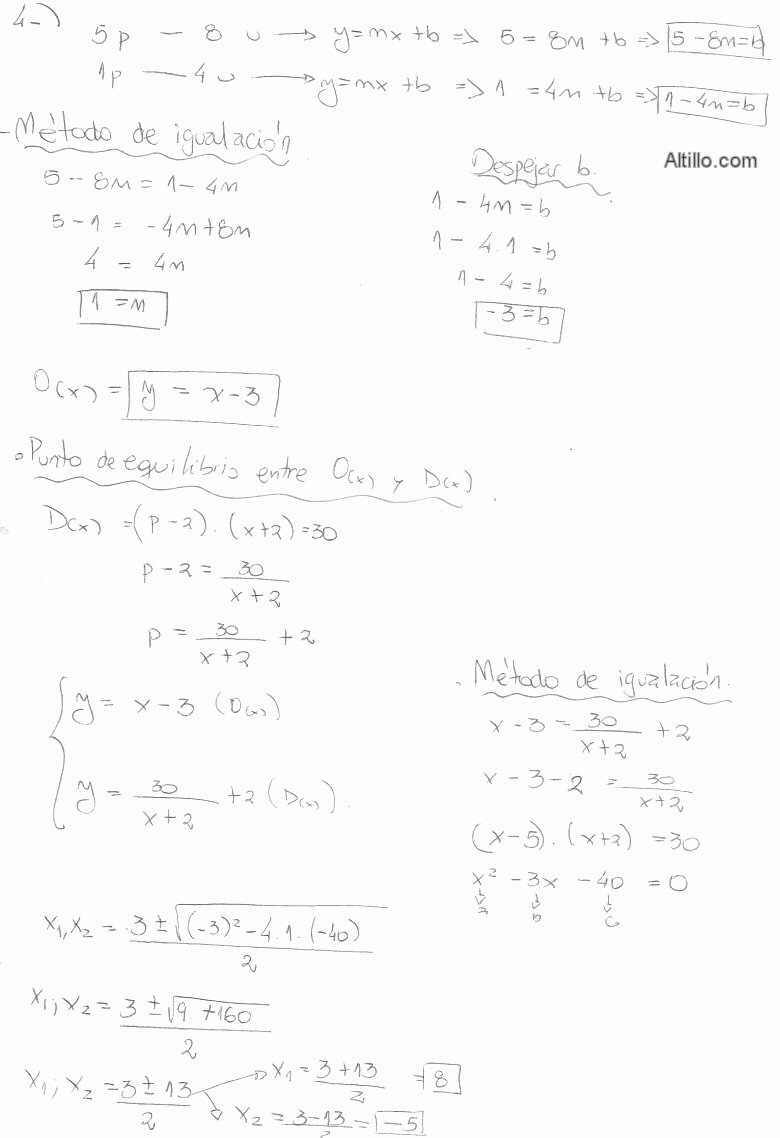 4-)
5p — 8 u → y=mx+b => 5 = 8m +b => 5-8m=b
1p — 4u → y=mx+b => 1 =4m+b => 1-4m=b
-Método de igualación
5-8m=1-4m
5-1= -4m+8m
4 = 4m
1 =m
Despejar b.
Altillo.com
1 - 4m=b
1 - 4.1 =b
1 - 4=b
-3=b
O(x) = y = x-3
Punto de equilibrio entre O(x) y D(x)
D(x) =(P-2).(x+2)=30
P-2= 30/(x+2)
P = 30/(x+2) +2
y = x-3 (O(x))
y = 30/(x+2) +2 (D(x)).
. Método de igualación.
x-3 = 30/(x+2) +2
x-3-2 = 30/(x+2)
(x-5).(x+2) =30
x² -3x -40 =0
a b c
x₁,x₂ = (3 ± √((-3)²-4.1.(-40)))/2
x₁;x₂ = (3 ± √(9+160))/2
x₁;x₂ = (3 ± 13)/2 → x₁ = (3+13)/2 = 8
x₂ = (3-13)/2 = -5